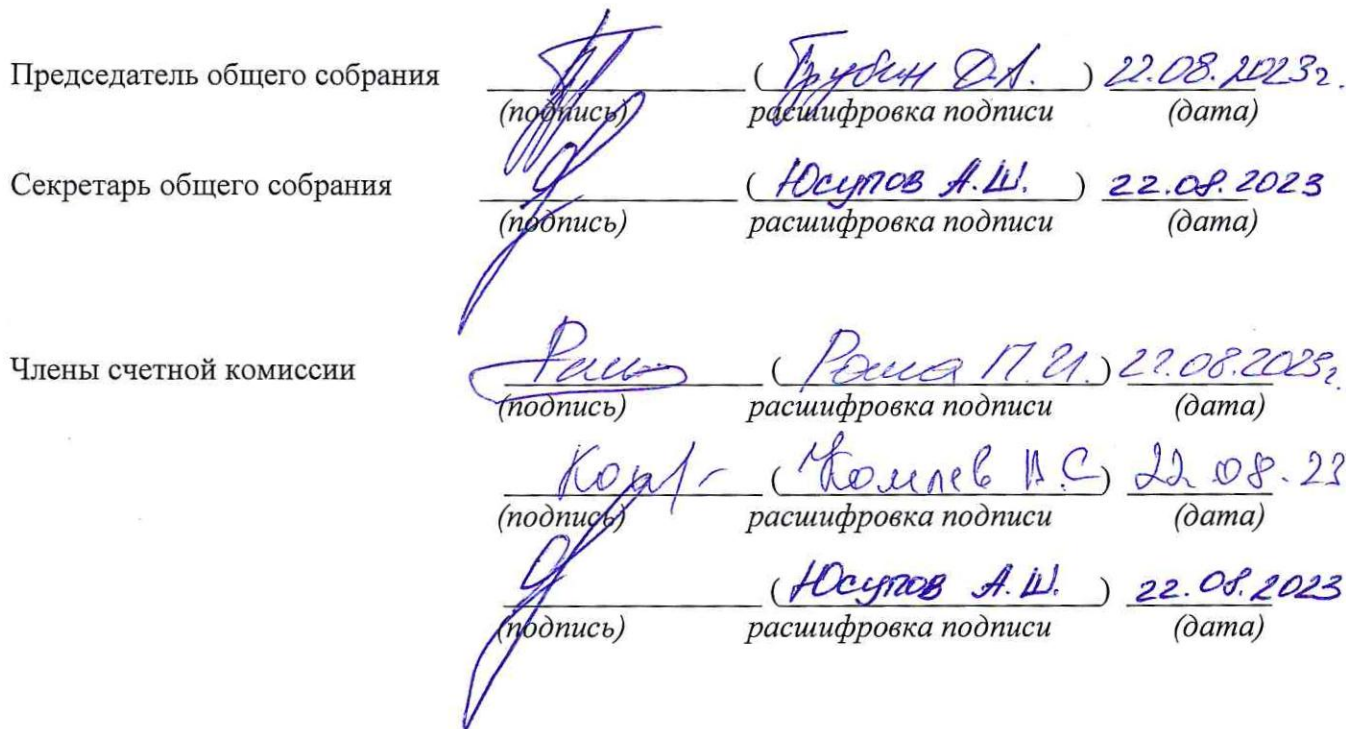 Председатель общего собрания ( Трубин Д.А. ) 22.08.2023г.
(подпись) расшифровка подписи (дата)
Секретарь общего собрания ( Юсупов А.Ш. ) 22.08.2023
(подпись) расшифровка подписи (дата)
Члены счетной комиссии ( Роша П.И. ) 22.08.2023г.
(подпись) расшифровка подписи (дата)
( Комлев В.С ) 22.08.23
(подпись) расшифровка подписи (дата)
( Юсупов А.Ш. ) 22.08.2023
(подпись) расшифровка подписи (дата)